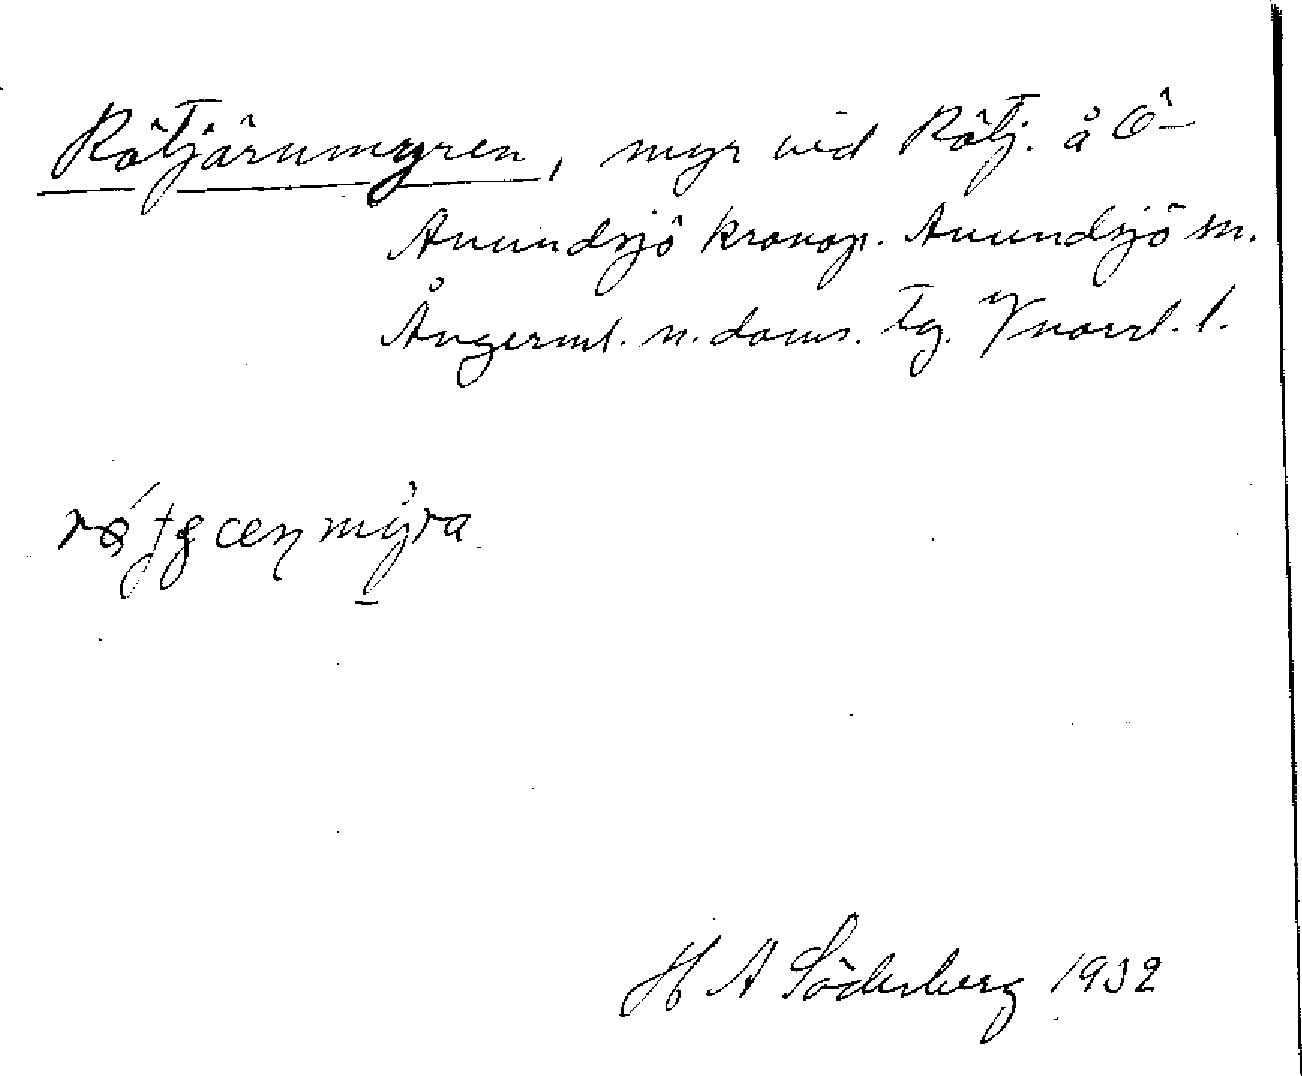 Rötjärnmyren, myr vid Rötj. å Ö-
Anundsjö kronop. Anundsjö sn.
Ångerml. n. doms. Tg. Vnorrl. l.
H A Söderberg 1932